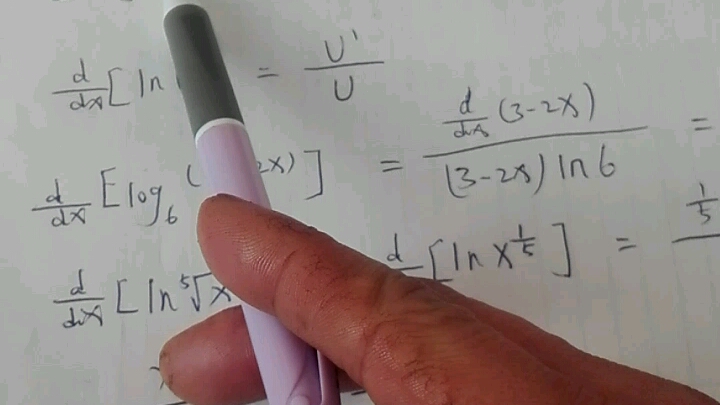 d/dx [ln = U'/U
d/dx [log₆ ( 2x)] = d/dx (3-2x)/(3-2x) ln 6 =
d/dx [ln ⁵√x d [ln x^1/5] = 1/5